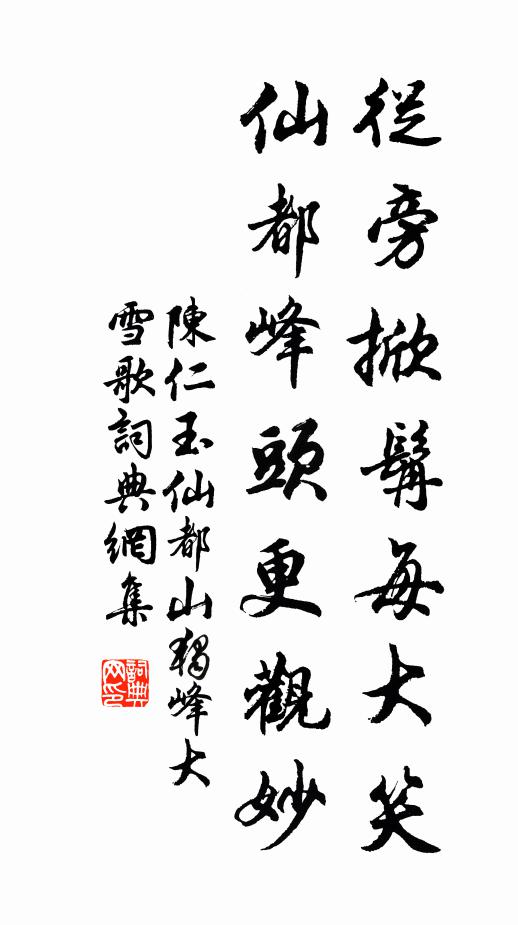 從旁掀髯每大笑
仙都峰頭更觀妙
陳仁玉仙都山獨峰大
雪歌詞典網集
詞典网印